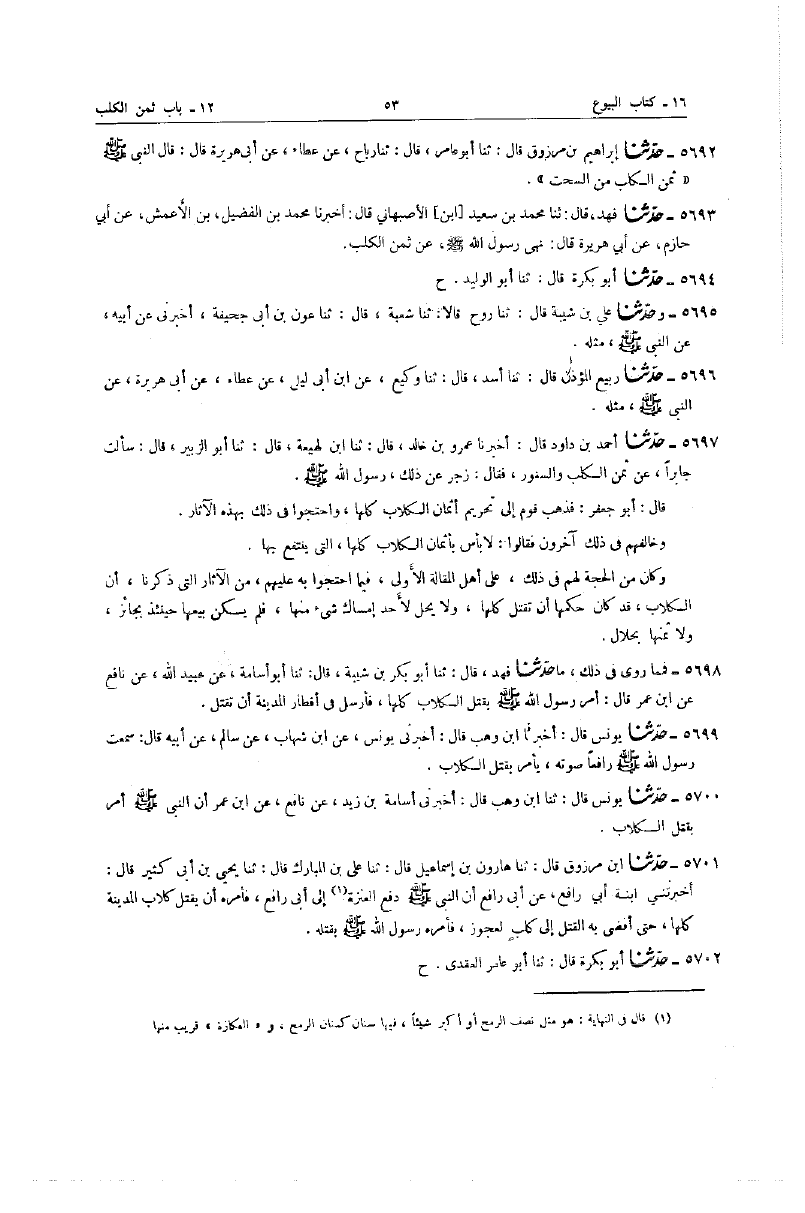 ١٦ ـ كتاب البيوع ٥٣ ١٢ ـ باب ثمن الكلب
٥٦٩٢ ـ حدّثنا إبراهيم بن مرزوق قال : ثنا أبو عامر ، قال : ثنا رباح ، عن عطاء ، عن أبى هريرة قال : قال النبى ﷺ
« ثمن الكلب من السحت » .
٥٦٩٣ ـ حدّثنا فهد، قال: ثنا محمد بن سعيد [ابن] الأصبهاني قال: أخبرنا محمد بن الفضيل، بن الأعمش، عن أبي
حازم، عن أبي هريرة قال: نهى رسول الله ﷺ، عن ثمن الكلب.
٥٦٩٤ ـ حدّثنا أبو بكرة قال : ثنا أبو الوليد . ح
٥٦٩٥ ـ وحدّثنا على بن شيبة قال : ثنا روح قالا: ثنا شعبة ، قال : ثنا عون بن أبى جحيفة ، أخبرنى عن أبيه ،
عن النبى ﷺ ، مثله .
٥٦٩٦ ـ حدّثنا ربيع المؤذن قال : ثنا أسد ، قال : ثنا وكيع ، عن ابن أبى ليلى ، عن عطاء ، عن أبى هريرة ، عن
النبى ﷺ ، مثله .
٥٦٩٧ ـ حدّثنا أحمد بن داود قال : أخبرنا عمرو بن خالد ، قال : ثنا ابن لهيعة ، قال : ثنا أبو الزبير ، قال : سألت
جابراً ، عن ثمن الكلب والسنور ، فقال : زجر عن ذلك ، رسول الله ﷺ .
قال : أبو جعفر : فذهب قوم إلى تحريم أثمان الكلاب كلها ، واحتجوا فى ذلك بهذه الآثار .
وخالفهم فى ذلك آخرون فقالوا : لا بأس بأثمان الكلاب كلها ، التى ينتفع بها .
وكان من الحجة لهم فى ذلك ، على أهل المقالة الأولى ، فيما احتجوا به عليهم ، من الآثار التى ذكرنا ، أن
الكلاب ، قد كان حكمها أن تقتل كلها ، ولا يحل لأحد إمساك شىء منها ، فلم يكن بيعها حينئذ بجائز ،
ولا ثمنها بحلال .
٥٦٩٨ ـ فما روى فى ذلك ، ما حدّثنا فهد ، قال : ثنا أبو بكر بن شيبة ، قال: ثنا أبو أسامة ، عن عبيد الله ، عن نافع
عن ابن عمر قال : أمر رسول الله ﷺ بقتل الكلاب كلها ، فأرسل فى أقطار المدينة أن تقتل .
٥٦٩٩ ـ حدّثنا يونس قال : أخبرنا ابن وهب قال : أخبرنى يونس ، عن ابن شهاب ، عن سالم ، عن أبيه قال: سمعت
رسول الله ﷺ رافعاً صوته ، يأمر بقتل الكلاب .
٥٧٠٠ ـ حدّثنا يونس قال : ثنا ابن وهب قال : أخبرنى أسامة بن زيد ، عن نافع ، عن ابن عمر أن النبى ﷺ أمر
بقتل الكلاب .
٥٧٠١ ـ حدّثنا ابن مرزوق قال : ثنا هارون بن إسماعيل قال : ثنا على بن المبارك قال : ثنا يحيى بن أبى كثير قال :
أخبرتني ابنة أبي رافع، عن أبى رافع أن النبى ﷺ دفع العنزة(١) إلى أبى رافع ، فأمره أن يقتل كلاب المدينة
كلها ، حتى أفضى به القتل إلى كلبٍ لعجوز ، فأمره رسول الله ﷺ بقتله .
٥٧٠٢ ـ حدّثنا أبو بكرة قال : ثنا أبو عامر العقدى . ح
(١) قال فى النهاية : هو مثل نصف الرمح أو أكبر شيئاً ، فيها سنان كسنان الرمح ، و « العكازة » قريب منها